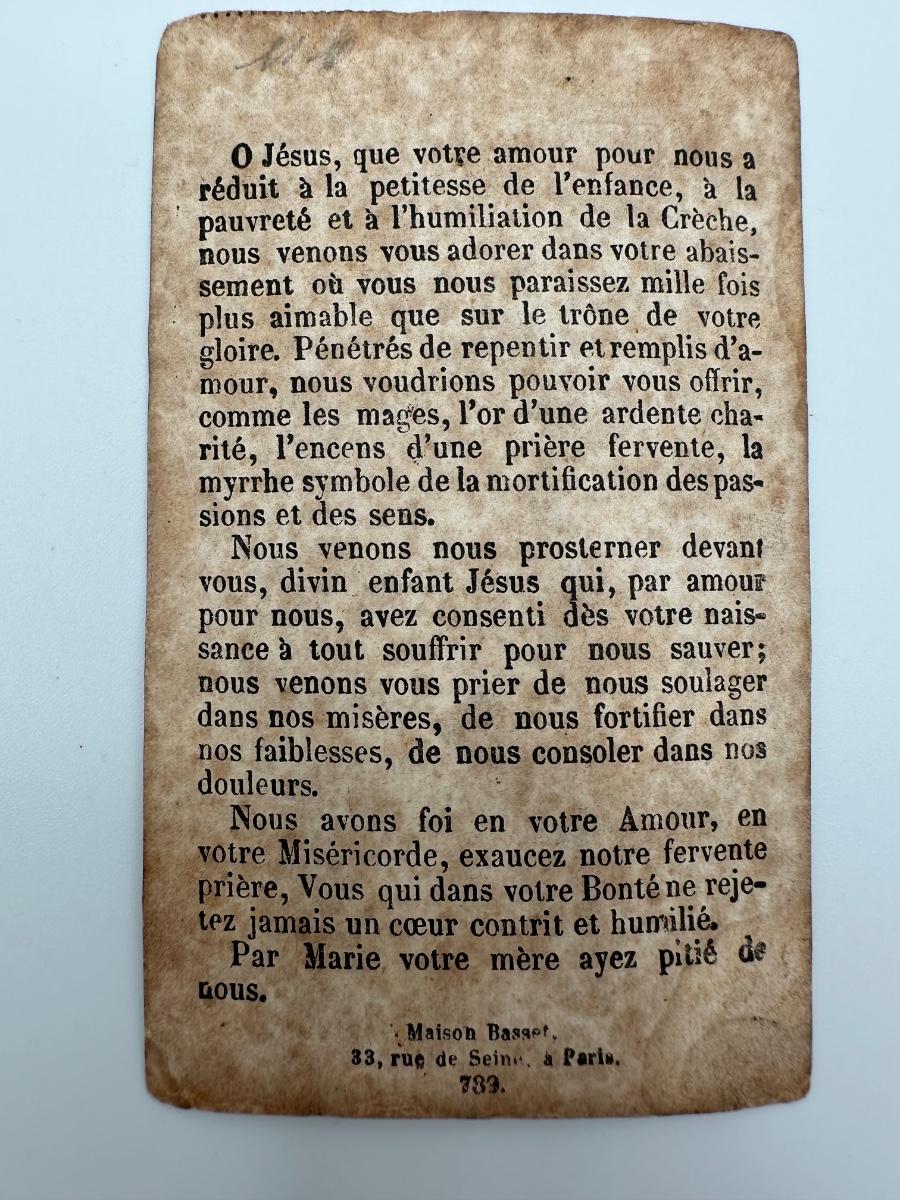 O Jésus, que votre amour pour nous a
réduit à la petitesse de l'enfance, à la
pauvreté et à l'humiliation de la Crèche,
nous venons vous adorer dans votre abais-
sement où vous nous paraissez mille fois
plus aimable que sur le trône de votre
gloire. Pénétrés de repentir et remplis d'a-
mour, nous voudrions pouvoir vous offrir,
comme les mages, l'or d'une ardente cha-
rité, l'encens d'une prière fervente, la
myrrhe symbole de la mortification des pas-
sions et des sens.
Nous venons nous prosterner devant
vous, divin enfant Jésus qui, par amour
pour nous, avez consenti dès votre nais-
sance à tout souffrir pour nous sauver;
nous venons vous prier de nous soulager
dans nos misères, de nous fortifier dans
nos faiblesses, de nous consoler dans nos
douleurs.
Nous avons foi en votre Amour, en
votre Miséricorde, exaucez notre fervente
prière, Vous qui dans votre Bonté ne reje-
tez jamais un cœur contrit et humilié.
Par Marie votre mère ayez pitié de
nous.
Maison Basset.
33, rue de Seine, à Paris.